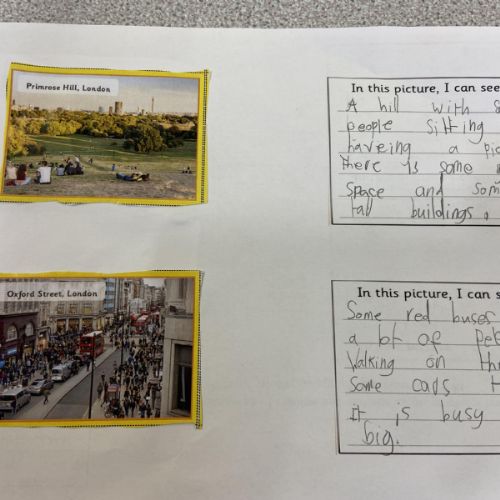 Primrose Hill, London
In this picture, I can see
A hill with
people sitting
haveing a
there is some
space and
tall buildings.
Oxford Street, London
In this picture, I can
Some red buses
a lot of
Walking on
Some cars
it is busy
big.